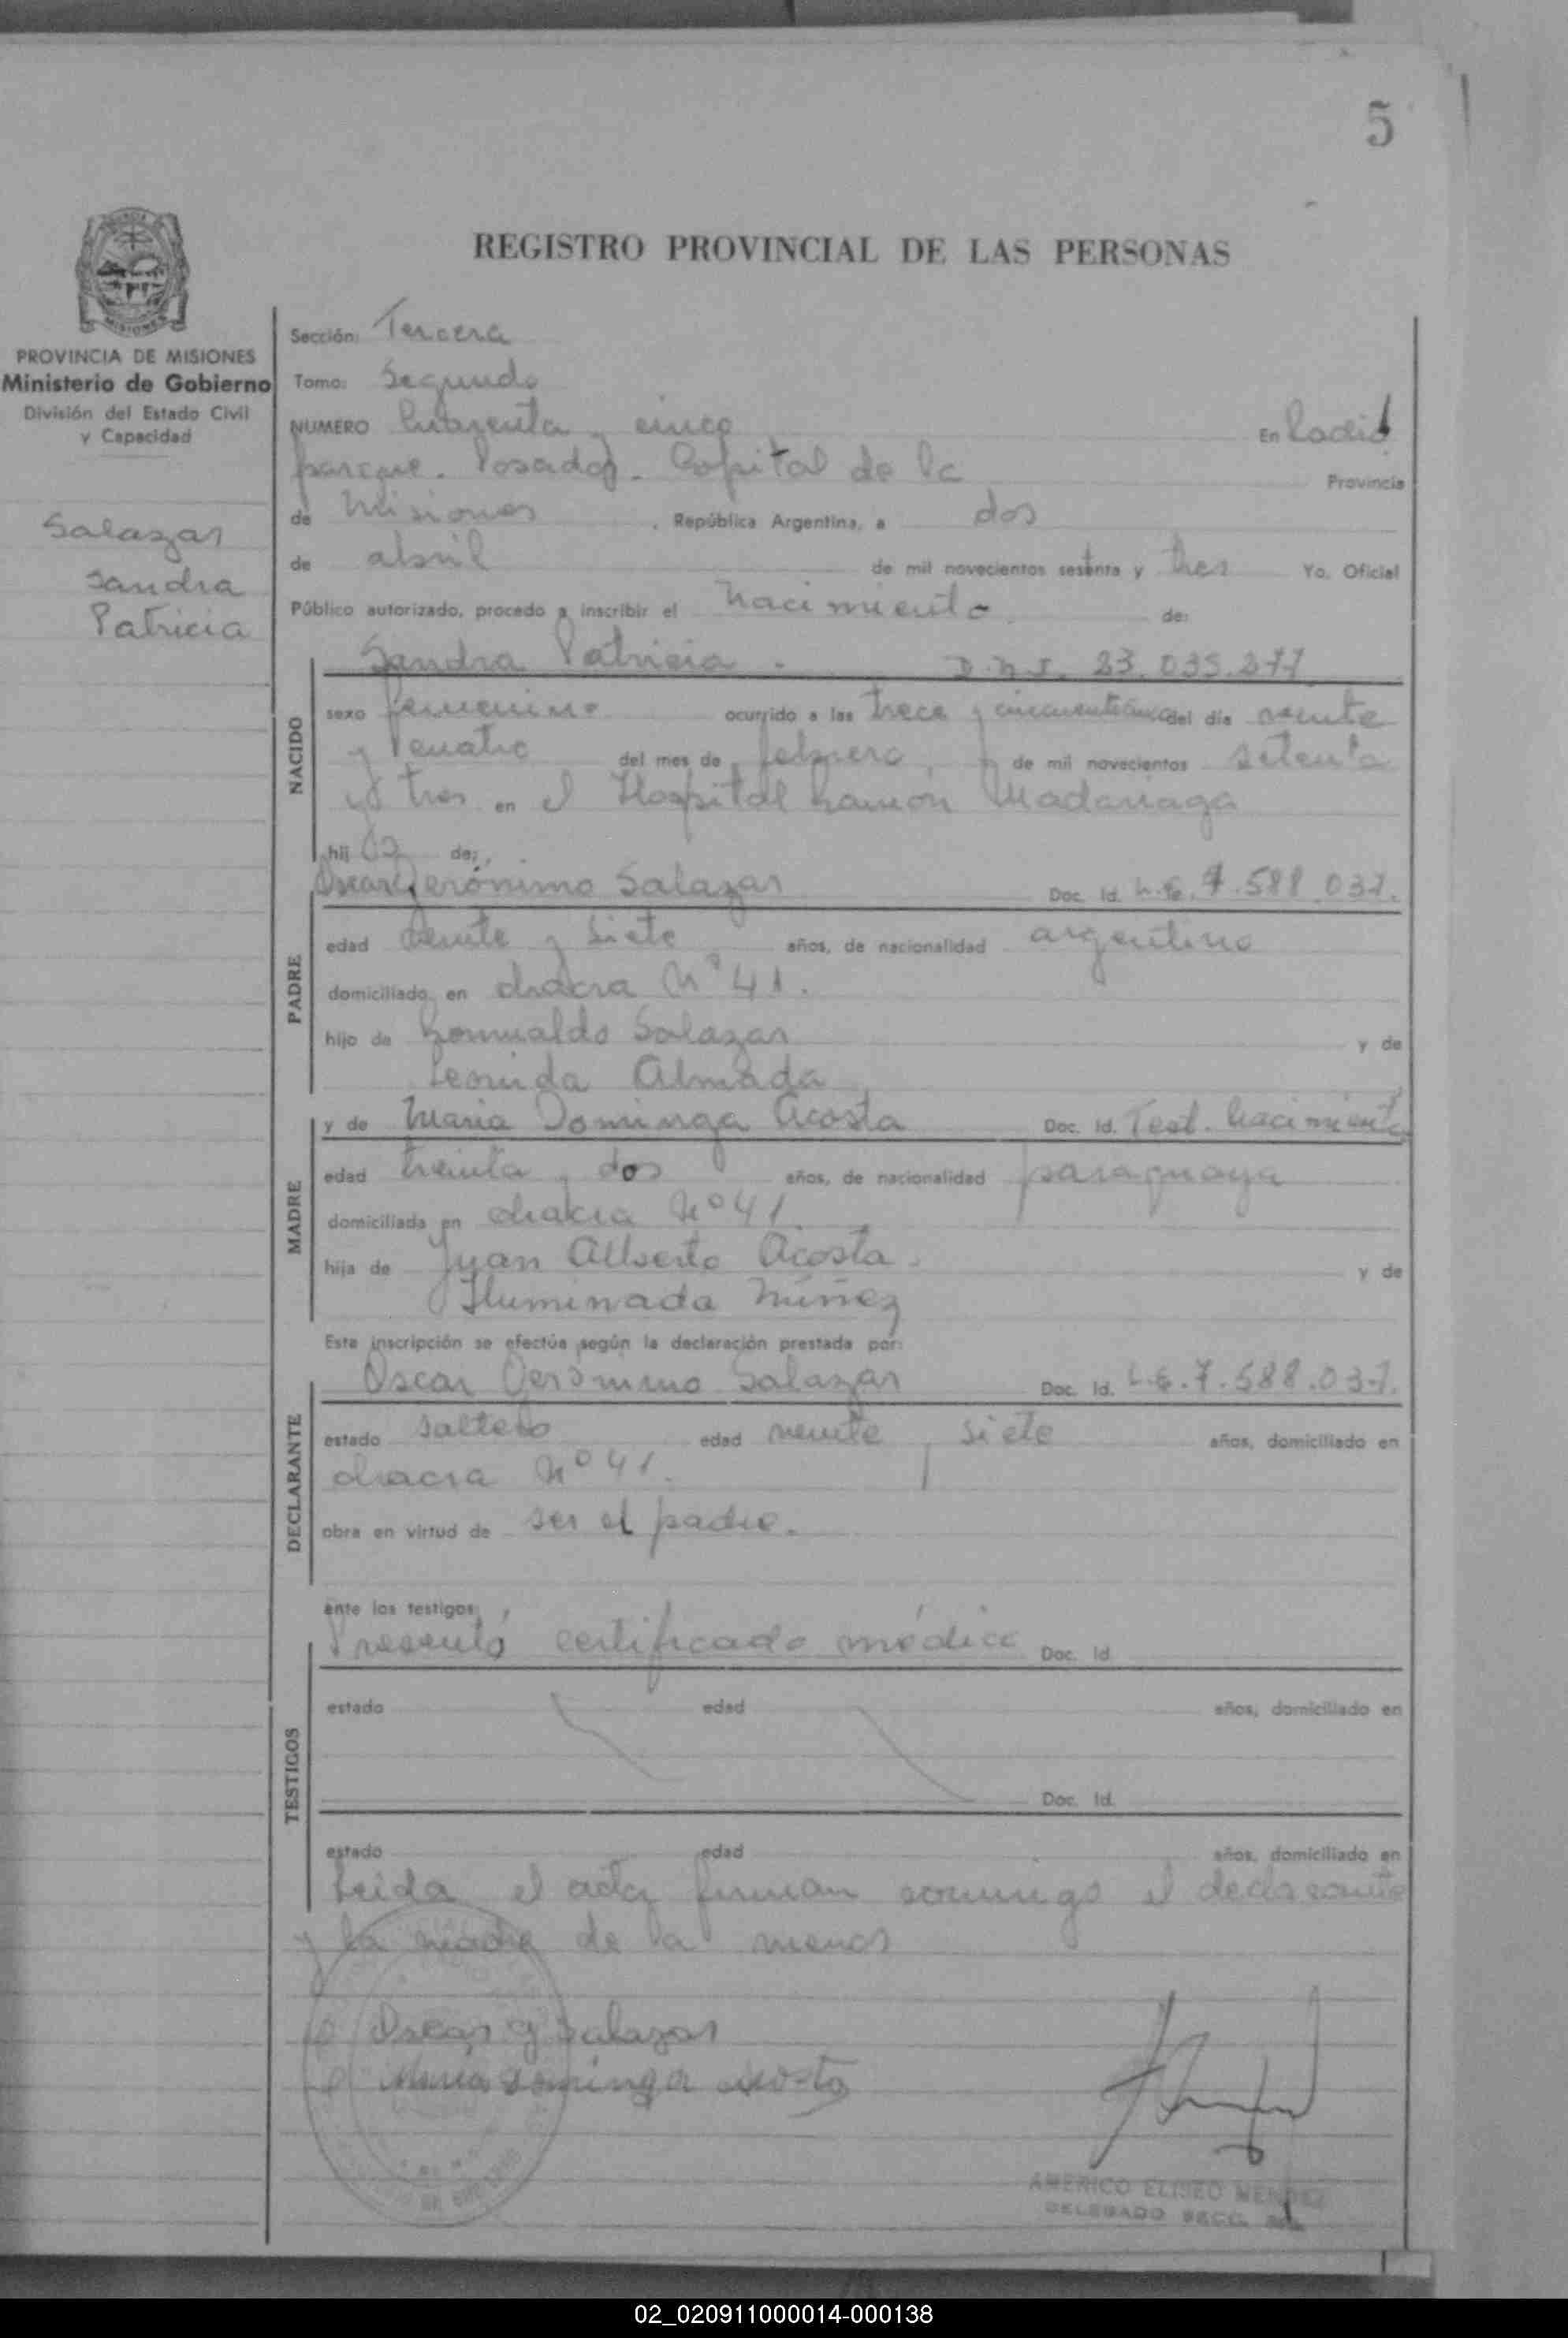 5
REGISTRO PROVINCIAL DE LAS PERSONAS
MISIONES
PROVINCIA DE MISIONES
Ministerio de Gobierno
División del Estado Civil
y Capacidad
Salazar
Sandra
Patricia
Sección: Tercera
Tomo: Segundo
NUMERO Cuarenta y cinco En
parque - Posadas - Capital de la Provincia
de Misiones , República Argentina, a dos
de abril de mil novecientos setenta y tres Yo, Oficial
Público autorizado, procedo a inscribir el nacimiento de:
NACIDO
Sandra Patricia - D.N.I. 23.035.277
sexo femenino ocurrido a las trece y del día veinte
y cuatro del mes de febrero de mil novecientos setenta
y tres en el Hospital Ramón Madariaga
hij de:
PADRE
Oscar Gerónimo Salazar Doc. Id. L.E. 7.588.037.
edad veinte y siete años, de nacionalidad argentino
domiciliado en chacra Nº 41.
hijo de Romualdo Salazar y de
Leonida Almada
MADRE
y de María Dominga Acosta Doc. Id. Test. Nacimiento
edad treinta y dos años, de nacionalidad paraguaya
domiciliada en chacra Nº 41
hija de Juan Alberto Acosta y de
Iluminada Núñez
Esta inscripción se efectúa según la declaración prestada por:
DECLARANTE
Oscar Gerónimo Salazar Doc. Id. L.E. 7.588.037.
estado soltero edad veinte y siete años, domiciliado en
chacra Nº 41.
obra en virtud de ser el padre.
ante los testigos:
TESTIGOS
Presentó certificado médico Doc. Id.
estado edad años, domiciliado en
Doc. Id.
estado edad años, domiciliado en
Leída el acta firman conmigo el declarante
y la madre de la menor
Oscar G Salazar
María Dominga Acosta
AMERICO ELISEO MENDEZ
DELEGADO SECC.
02_020911000014-000138